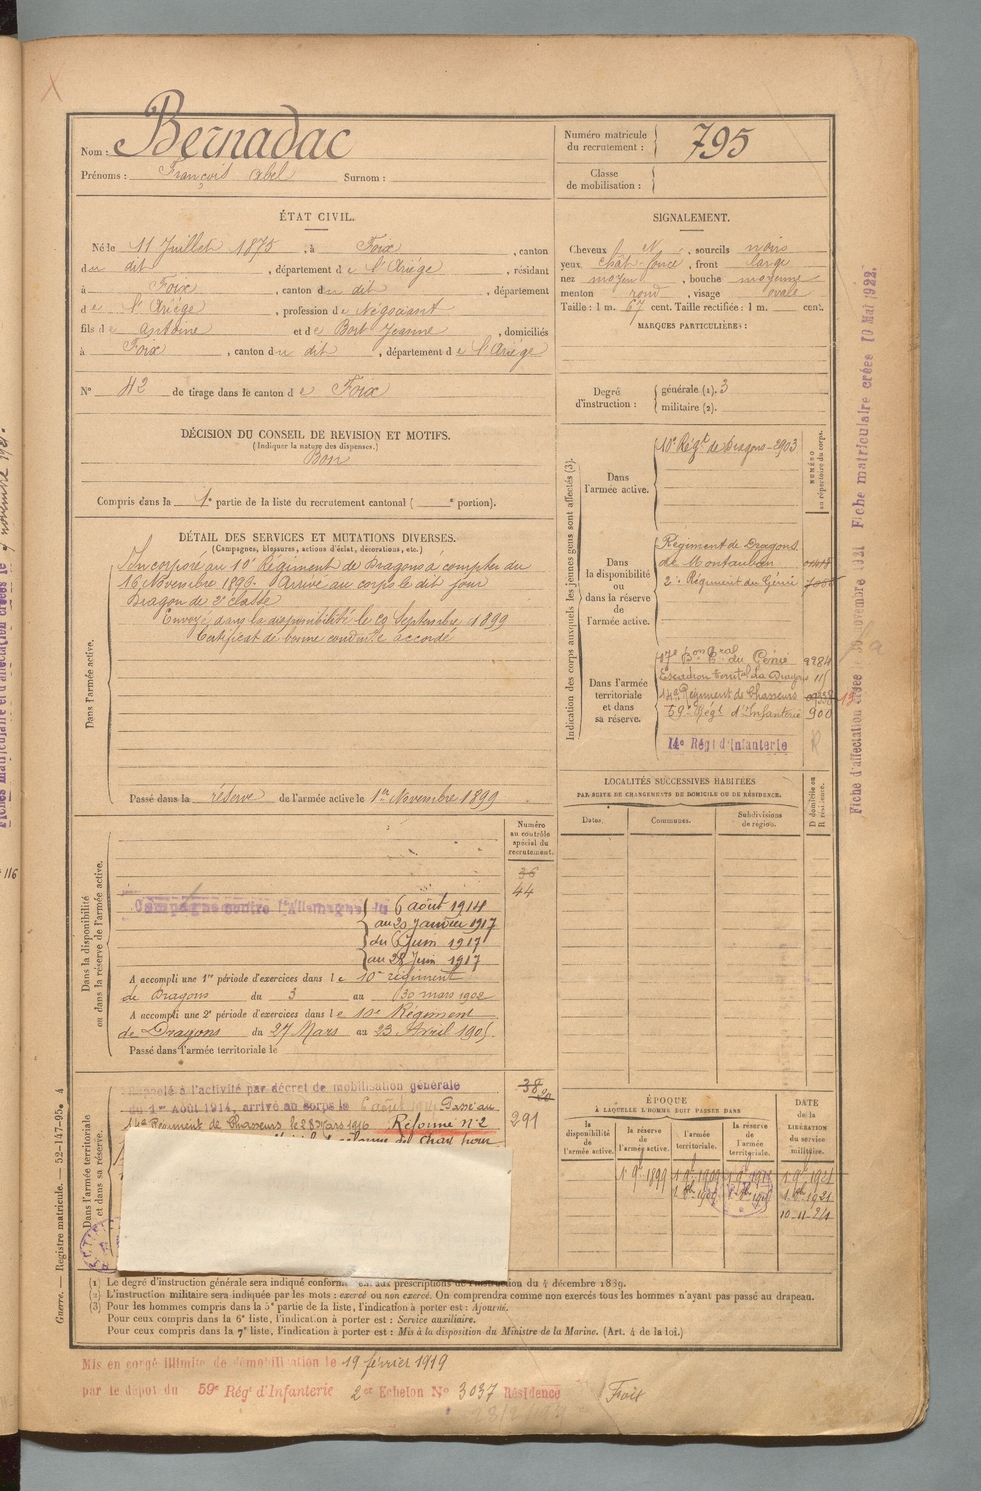 Nom : Bernadac
Prénoms : François Abel Surnom :
Numéro matricule du recrutement : 795
Classe de mobilisation :
ÉTAT CIVIL.
Né le 11 Juillet 1875, à Foix, canton
du dit, département de l'Ariège, résidant
à Foix, canton du dit, département
de l'Ariège, profession de Négociant
fils de Antoine et de Bort Jeanne, domiciliés
à Foix, canton du dit, département de l'Ariège
N° 42 de tirage dans le canton de Foix
SIGNALEMENT.
Cheveux N, sourcils noirs
yeux chât-foncé, front large
nez moyen, bouche moyenne
menton rond, visage ovale
Taille : 1 m. 67 cent. Taille rectifiée : 1 m. cent.
MARQUES PARTICULIÈRES :
Degré d'instruction : générale (1). 3
militaire (2).
DÉCISION DU CONSEIL DE REVISION ET MOTIFS.
(Indiquer la nature des dispenses.)
Bon
Compris dans la 1e partie de la liste du recrutement cantonal ( e portion).
DÉTAIL DES SERVICES ET MUTATIONS DIVERSES.
(Campagnes, blessures, actions d'éclat, décorations, etc.)
Dans l'armée active.
Incorporé au 10e Régiment de Dragons à compter du
16 Novembre 1896. Arrivé au corps le dit jour
Dragon de 2e classe
Envoyé dans la disponibilité le 29 Septembre 1899
Certificat de bonne conduite accordé
Passé dans la réserve de l'armée active le 1er Novembre 1899
Indication des corps auxquels les jeunes gens sont affectés (3).
NUMÉRO au répertoire du corps.
Dans l'armée active.
10e Régt de Dragons - 2903
Dans la disponibilité ou dans la réserve de l'armée active.
Régiment de Dragons
de Montauban
2e Régiment du Génie
Dans l'armée territoriale et dans sa réserve.
17e Bon Tral du Génie 9284
Escadron territal de Dragons 115
14e Régiment de Chasseurs
59e Régt d'Infanterie 900
14e Régt d'Infanterie
LOCALITÉS SUCCESSIVES HABITÉES
PAR SUITE DE CHANGEMENTS DE DOMICILE OU DE RÉSIDENCE.
Dates. Communes. Subdivisions de région.
D domicile ou R résidence.
Dans la disponibilité ou dans la réserve de l'armée active.
Numéro au contrôle spécial du recrutement.
36
44
Campagne contre l'Allemagne du 6 août 1914
au 20 Janvier 1917
du 6 Juin 1917
au 28 Juin 1917
A accompli une 1re période d'exercices dans le 10e régiment
de Dragons du 3 au 30 mars 1902
A accompli une 2e période d'exercices dans le 10e Régiment
de Dragons du 27 Mars au 23 Avril 1905.
Passé dans l'armée territoriale le
Dans l'armée territoriale et dans sa réserve.
Rappelé à l'activité par décret de mobilisation générale
du 1er Août 1914, arrivé au corps le 6 août Passé au
14e Régiment de Chasseurs le 28 Mars 1916 Réforme n°2
38
291
ÉPOQUE
À LAQUELLE L'HOMME DOIT PASSER DANS
la disponibilité de l'armée active. la réserve de l'armée active. l'armée territoriale. la réserve de l'armée territoriale.
DATE de la LIBÉRATION du service militaire.
1 9bre 1899 1 9bre 1909 1 9bre 1921
1 8bre 1921
10-11-24
(1) Le degré d'instruction générale sera indiqué conformément aux prescriptions de l'instruction du 4 décembre 1889.
(2) L'instruction militaire sera indiquée par les mots : exercé ou non exercé. On comprendra comme non exercés tous les hommes n'ayant pas passé au drapeau.
(3) Pour les hommes compris dans la 5e partie de la liste, l'indication à porter est : Ajourné.
Pour ceux compris dans la 6e liste, l'indication à porter est : Service auxiliaire.
Pour ceux compris dans la 7e liste, l'indication à porter est : Mis à la disposition du Ministre de la Marine. (Art. 4 de la loi.)
Mis en congé illimité de démobilisation le 19 février 1919
par le dépôt du 59e Régt d'Infanterie 2er Echelon N° 3037 Résidence Foix
Guerre. — Registre matricule. — 52-147-95. 4
Fiche d'affectation créée le novembre 1921 Fiche matriculaire créée 10 Mai 1922.
116